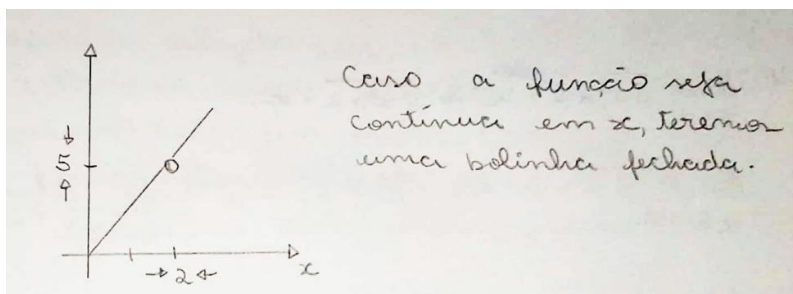 Caso a função seja
contínua em x, teremos
uma bolinha fechada.
5
2
x